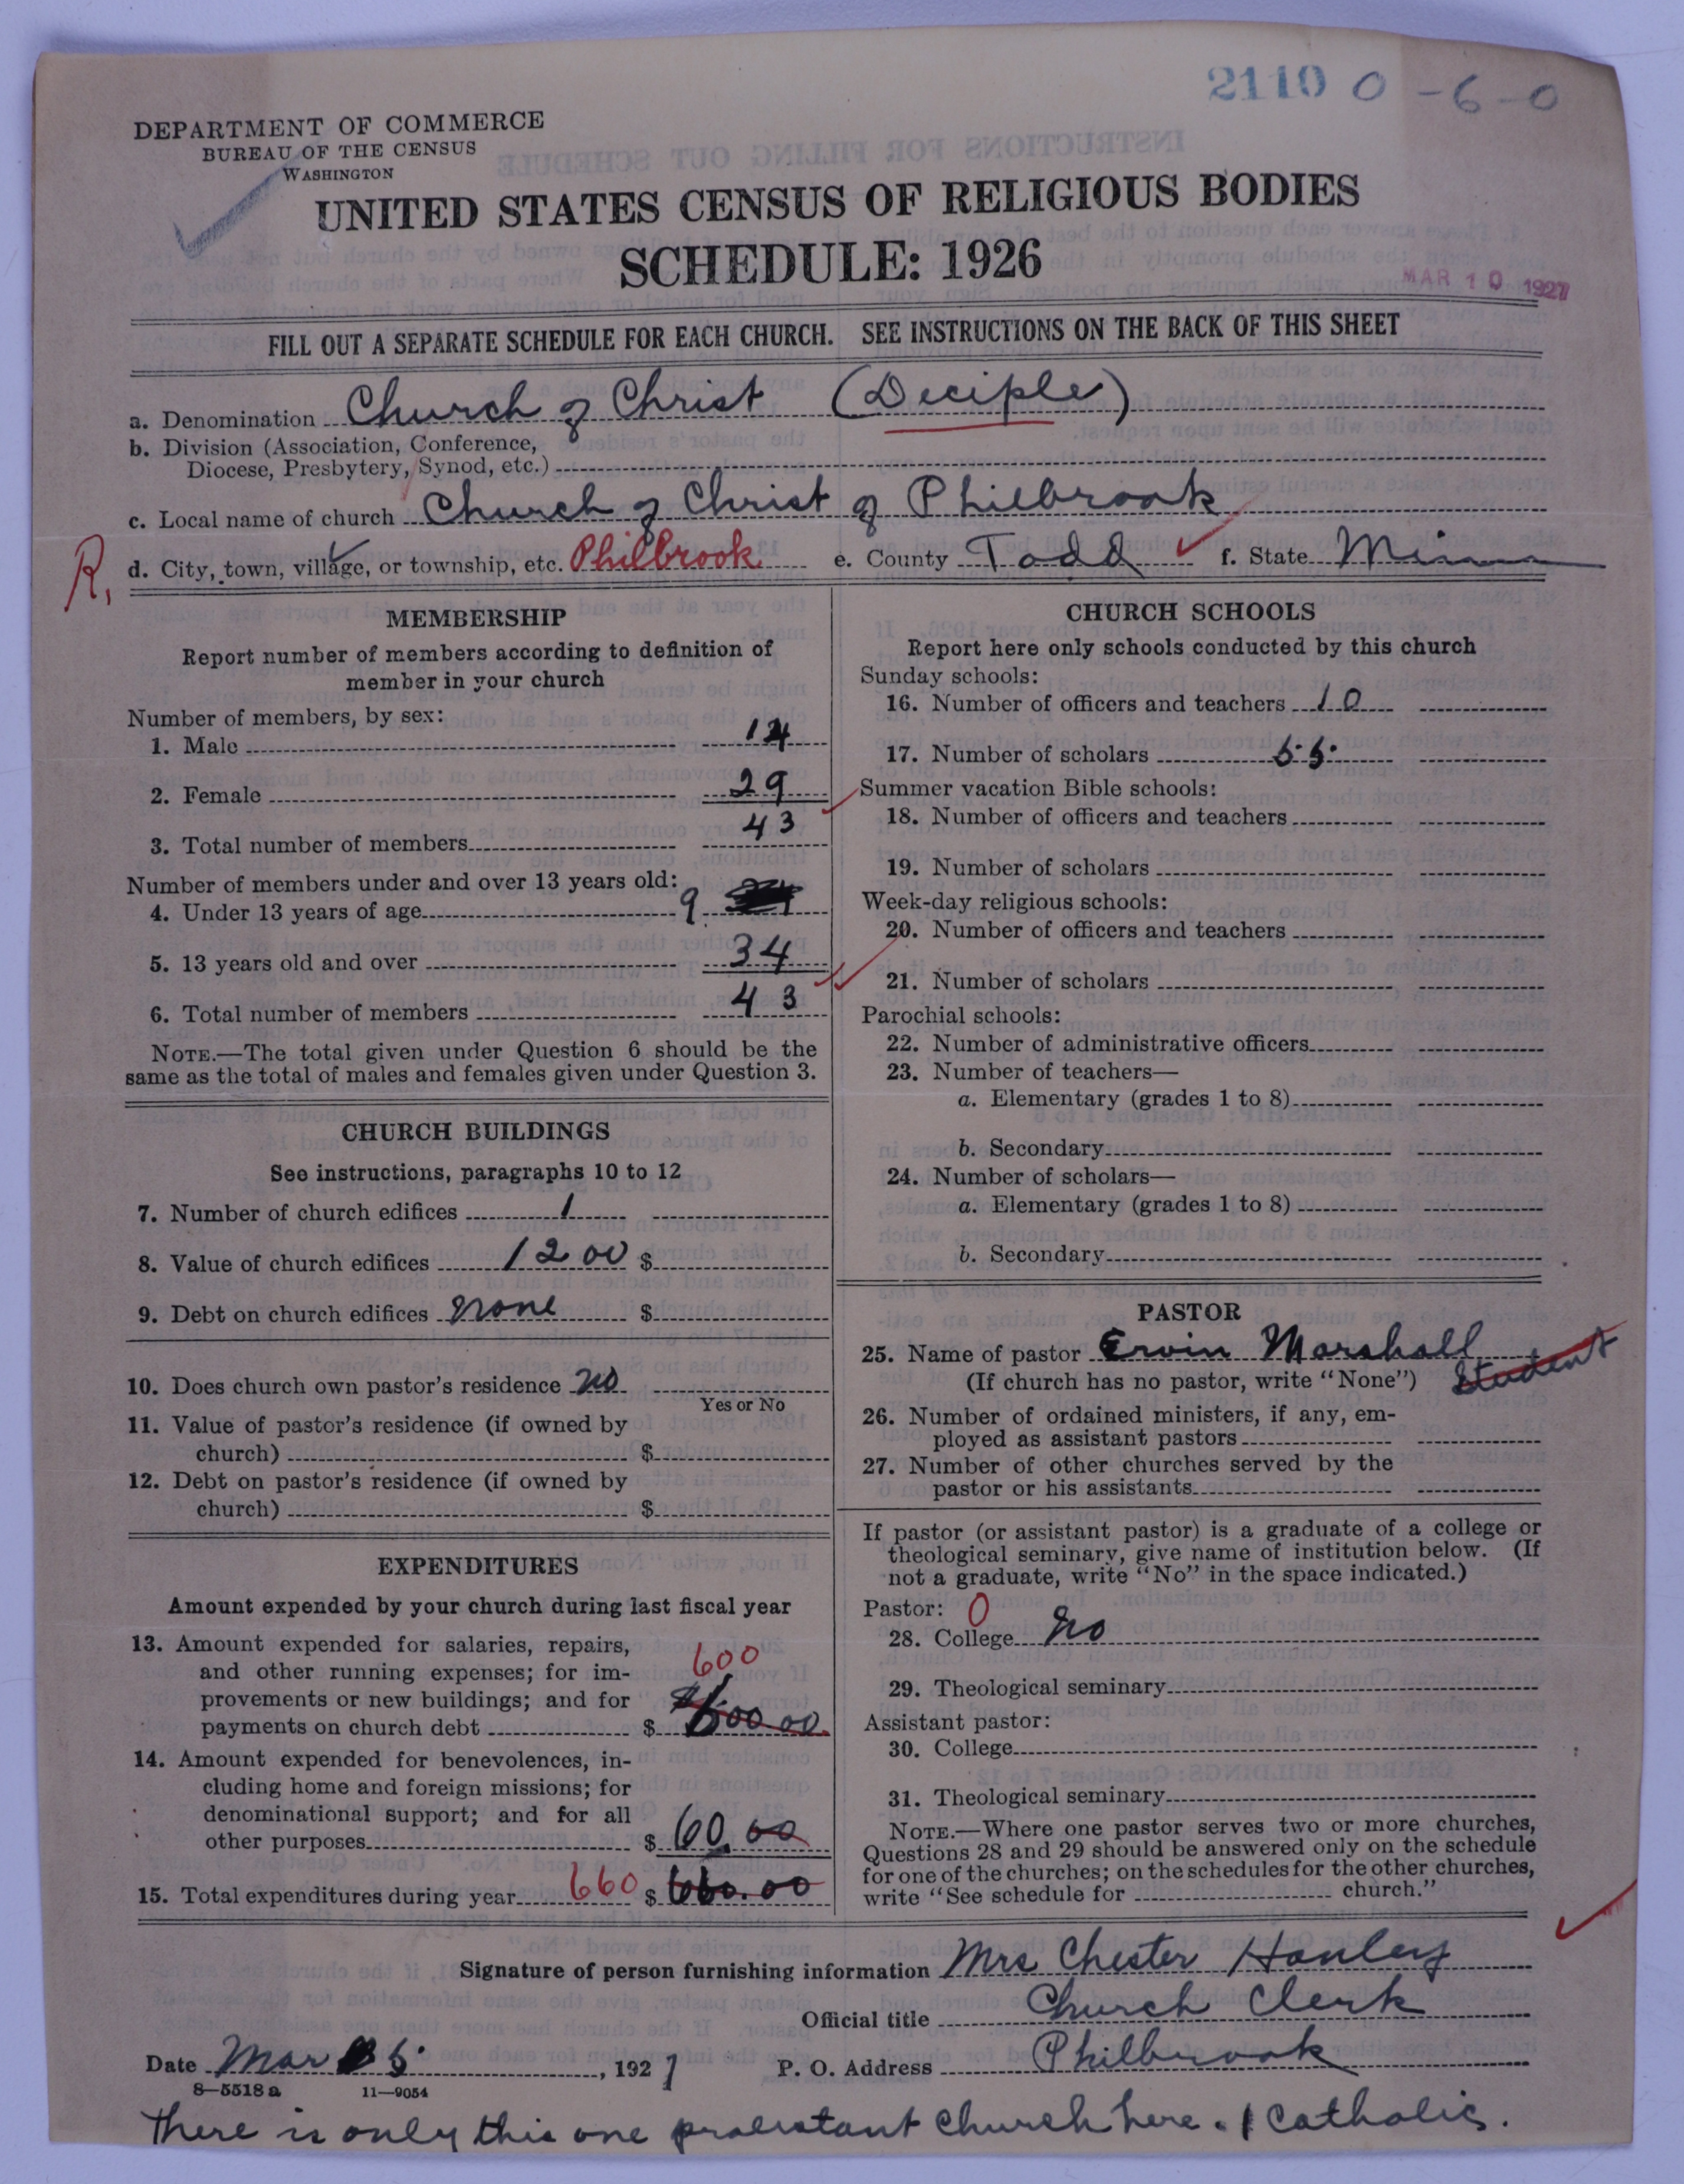 2110 0-6-0
DEPARTMENT OF COMMERCE
BUREAU OF THE CENSUS
WASHINGTON
UNITED STATES CENSUS OF RELIGIOUS BODIES
SCHEDULE: 1926
MAR 10 1927
FILL OUT A SEPARATE SCHEDULE FOR EACH CHURCH. SEE INSTRUCTIONS ON THE BACK OF THIS SHEET
a. Denomination Church of Christ (Deciple)
b. Division (Association, Conference,
Diocese, Presbytery, Synod, etc.)
c. Local name of church Church of Christ of Philbrook
R. d. City, town, village, or township, etc. Philbrook e. County Todd f. State Minn
MEMBERSHIP
Report number of members according to definition of
member in your church
Number of members, by sex:
1. Male 14
2. Female 29
3. Total number of members 43
Number of members under and over 13 years old:
4. Under 13 years of age 9
5. 13 years old and over 34
6. Total number of members 43
NOTE.—The total given under Question 6 should be the
same as the total of males and females given under Question 3.
CHURCH BUILDINGS
See instructions, paragraphs 10 to 12
7. Number of church edifices 1
8. Value of church edifices 1200 $
9. Debt on church edifices none $
10. Does church own pastor's residence no
Yes or No
11. Value of pastor's residence (if owned by
church) $
12. Debt on pastor's residence (if owned by
church) $
EXPENDITURES
Amount expended by your church during last fiscal year
13. Amount expended for salaries, repairs,
and other running expenses; for im-
600
provements or new buildings; and for
payments on church debt $ $600.00
14. Amount expended for benevolences, in-
cluding home and foreign missions; for
denominational support; and for all
other purposes $ 60.00
15. Total expenditures during year 660 $ 660.00
CHURCH SCHOOLS
Report here only schools conducted by this church
Sunday schools:
16. Number of officers and teachers 10
17. Number of scholars 55
Summer vacation Bible schools:
18. Number of officers and teachers
19. Number of scholars
Week-day religious schools:
20. Number of officers and teachers
21. Number of scholars
Parochial schools:
22. Number of administrative officers
23. Number of teachers—
a. Elementary (grades 1 to 8)
b. Secondary
24. Number of scholars—
a. Elementary (grades 1 to 8)
b. Secondary
PASTOR
25. Name of pastor Ervin Marshall
(If church has no pastor, write "None") Student
26. Number of ordained ministers, if any, em-
ployed as assistant pastors
27. Number of other churches served by the
pastor or his assistants
If pastor (or assistant pastor) is a graduate of a college or
theological seminary, give name of institution below. (If
not a graduate, write "No" in the space indicated.)
Pastor: 0
28. College no
29. Theological seminary
Assistant pastor:
30. College
31. Theological seminary
NOTE.—Where one pastor serves two or more churches,
Questions 28 and 29 should be answered only on the schedule
for one of the churches; on the schedules for the other churches,
write "See schedule for church."
Signature of person furnishing information Mrs Chester Hanley
Official title Church Clerk
Date Mar 5, 1927 P. O. Address Philbrook
8—5518 a 11—9054
There is only this one protestant church here. 1 Catholic.